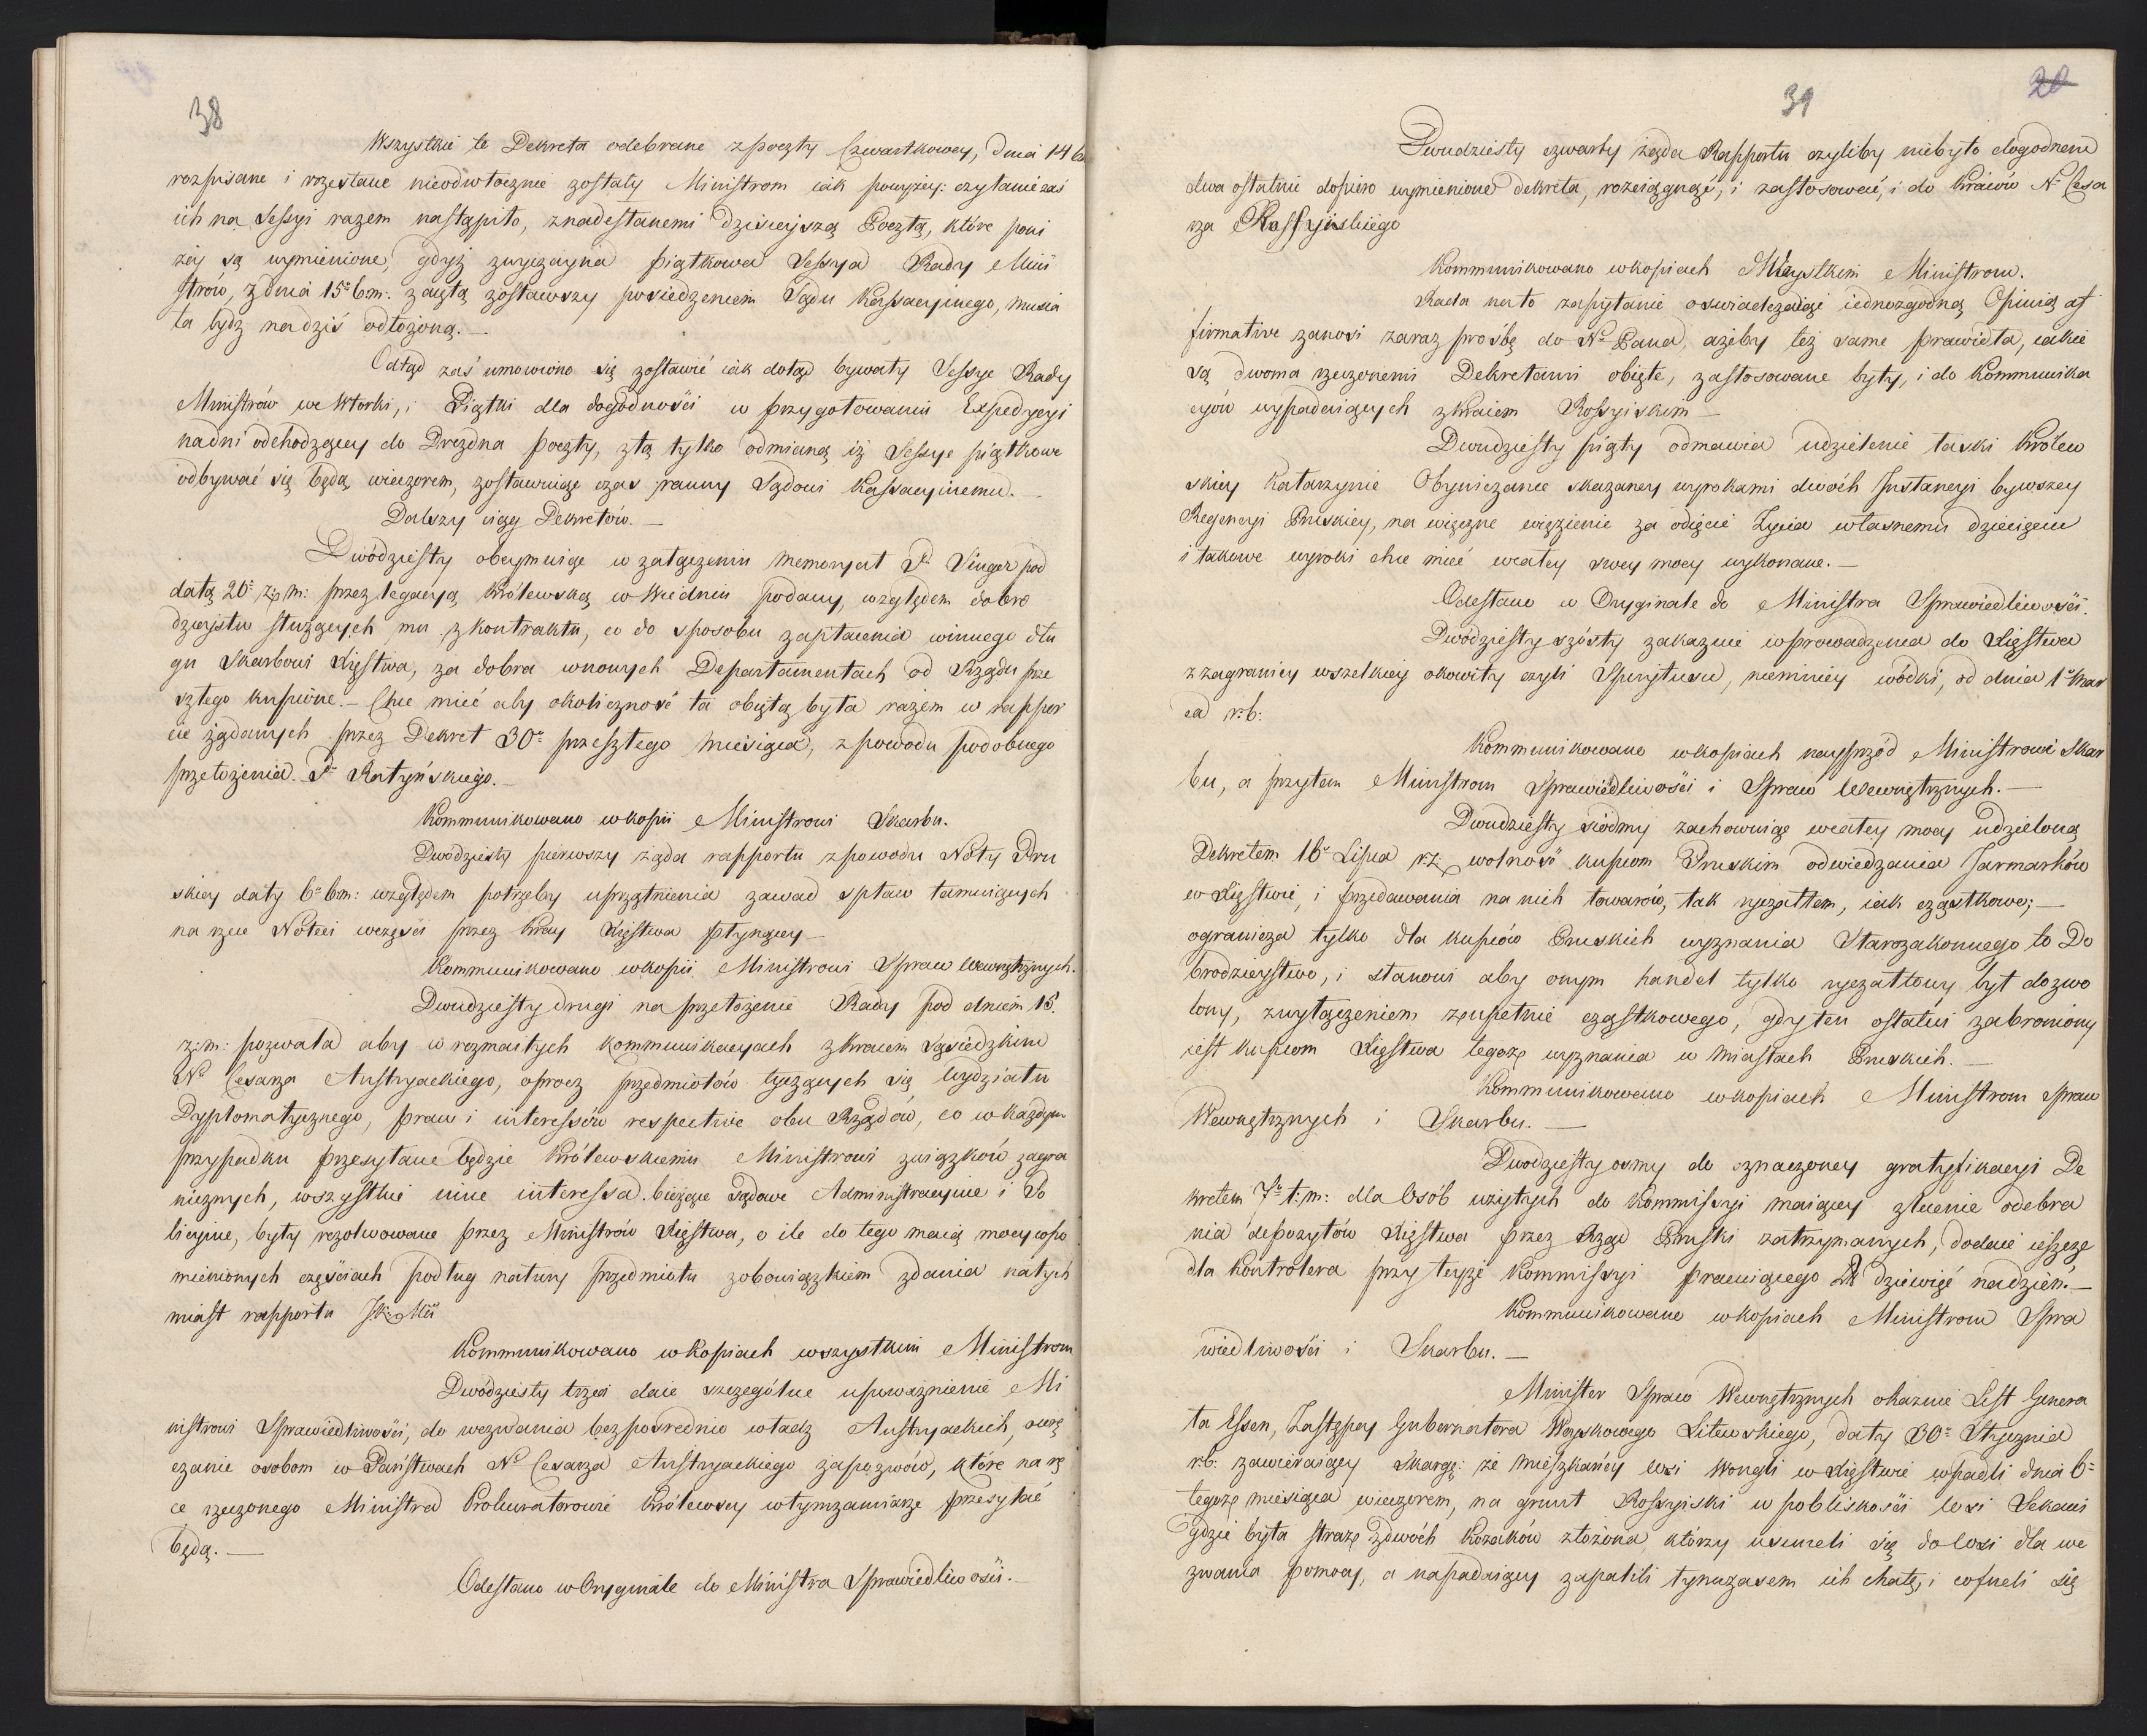 38
Wszystkie te Dekreta odebrane z poczty Czwartkowey, dnia 14 b
rozpisane i rozesłane nieodwłocznie zostały Ministrom iak powyżey: czytanie zaś
ich na Sessyi razem nastąpiło, z nadesłanemi dzisieyszą Pocztą, które poni
żey są wymienione, gdyż zwyczayna piątkowa Sessya Rady Mini
strów, z dnia 15º b.m: zaiętą zostawszy posiedzeniem Sądu Kassacyinego, musia
ła bydź na dziś odłożoną. —
Odtąd zaś umówiono się zostawić iak dotąd bywały Sessye Rady
Ministrów we Wtorki, i Piątki dla dogodności w przygotowaniu Expedycyi
na dni odchodzącey do Drezna poczty, z tą tylko odmianą iż Sessye piątkowe
odbywać się będą wieczorem, zostawuiąc czas ranny Sądowi Kassacyinemu. —
Dalszy ciąg Dekretów. —
Dwódziesty obeymuiąc w załączeniu memoryał P. Singer pod
datą 26º z.m: przez legacyą Królewską w Wiedniu podany, względem dobro
dzieystw służących mu z kontraktu, co do sposobu zapłacenia winnego dłu
gu Skarbowi Xięstwa, za dobra w nowych Departamentach od Rządu prze
szłego kupione. — Chce mieć aby okoliczność ta obiętą była razem w rappor
cie żądanych przez Dekret 30º przeszłego miesiąca, z powodu podobnego
przełożenia P. Ratyńskiego. —
Kommunikowano w kopii Ministrowi Skarbu.
Dwódziesty pierwszy żąda rapportu z powodu Noty Pru
skiey daty 6º b.m: względem potrzeby uprzątnienia zawad spław tamuiących
na rzece Noteci w części przez Kray Xięstwa płynącey —
Kommunikowano w kopii Ministrowi Spraw Wewnętrznych.
Dwudziesty drugi na przełożenie Rady pod dniem 15.
z.m: pozwala aby w rozmaitych kommunikacyach z Kraiem Sąsiedzkim
N. Cesarza Austryackiego, oprócz przedmiotów tyczących się Wydziału
Dyplomatycznego, praw i interessów respective obu Rządów, co w każdym
przypadku przesyłane będzie Królewskiemu Ministrowi związków zagra
nicznych, wszystkie inne interessa bieżące sądowe Administracyine i Po
licyine, były rezolwowane przez Ministrów Xięstwa, o ile do tego maią mocy wspo
mnionych częściach podług natury przedmiotu z obowiązkiem zdania natych
miast rapportu
Kommunikowano w kopiach wszystkim Ministrom
Dwódziesty trzeci daie szczególne upoważnienie Mi
nistrowi Sprawiedliwości, do wezwania bezpośrednio władz Austryackich, o wrę
czenie osobom w Państwach N. Cesarza Austryackiego zapozwów, które na rę
ce rzeczonego Ministra Prokuratorowie Królewscy w tym zamiarze przesyłać
będą. —
Odesłano w Oryginale do Ministra Sprawiedliwości. —
39
20
Dwudziesty czwarty żąda Rapportu czyliby niebyło dogodnem
dwa ostatnie dopiero wymienione dekreta, rozciągnąć, i zastosować, i do Kraiów N. Cesa
rza Rossyiskiego
Kommunikowano w kopiach Wszystkim Ministrom.
Rada na to zapytanie oswiadczaiąc iednozgodną Opinią af
firmative zanosi zaraz prośbę do N. Pana, ażeby też same prawidła, iakie
są dwoma rzeczonemi Dekretami obięte, zastosowane były, i do Kommunika
cyów wypadaiących z Kraiem Rossyiskim —
Dwudziesty piąty odmawia udzielenie łaski Królew
skiey Katarzynie Obyniczance skazaney wyrokami dwóch Instancyi bywszey
Regencyi Pruskiey, na więczne więzienie za odięcie Życia własnemu dziecięciu
i takowe wyroki chce mieć w całey swey mocy wykonane. —
Odesłano w Oryginale do Ministra Sprawiedliwości.
Dwódziesty szósty zakazuie wprowadzenia do Xięstwa
z zagranicy wszelkiey okowity czyli Spirytusu, niemniey wódki, od dnia 1º Mar
ca r.b:
Kommunikowano w kopiach nayprzód Ministrowi Skar
bu, a przytem Ministrom Sprawiedliwości i Spraw Wewnętrznych. —
Dwudziesty siódmy zachowuiąc w całey mocy udzieloną
Dekretem 16º Lipca r.z. wolność kupcom Pruskim odwiedzania Jarmarków
w Xięstwie, i przedawania na nich towarów, tak ryczałtem, iak cząstkowo; —
ogranicza tylko dla kupców Pruskich wyznania Starozakonnego to Do
brodzieystwo, i stanowi aby onym handel tylko ryczałtowy był dozwo
lony, z wyłączeniem zupełnie cząstkowego, gdy ten ostatni zabroniony
iest kupcom Xięstwa tegoż wyznania w Miastach Pruskich. —
Kommunikowano w kopiach Ministrom Spraw
Wewnętrznych i Skarbu. —
Dwodziesty osmy do oznaczoney gratyfikacyi De
kretem 7º t.m: dla Osób użytych do Kommissyi maiącey zlecenie odebra
nia depozytów Xięstwa przez Rząd Pruski zatrzymanych, dodaie ieszcze
dla Kontrolera przy teyże Kommissyi pracuiącego Zł dziewięć na dzień. —
Kommunikowano w kopiach Ministrom Spra
wiedliwości i Skarbu. —
Minister Spraw Wewnętrznych okazuie List Genera
ła Essen, Zastępcy Gubernatora Woyskowego Litewskiego, daty 30º Stycznia
r.b. zawieraiący Skargę: że mieszkańcy wsi Wongli w Xięstwie wpadli dnia 6º
tegoż miesiąca wieczorem, na grunt Rossyiski w pobliskości wsi Sekani
gdzie była straż z dwóch Kozaków złożona którzy usuneli się do wsi dla we
zwania pomocy, a napadaiący zapalili tymczasem ich chatę, i cofneli się